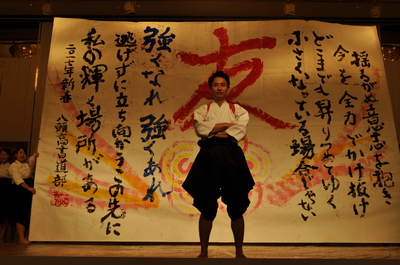 揺るがぬ意志を抱き
今を全力でかけ抜け
どこまでも昇りつめてゆく
小さくなっている場合じゃない
友
強くなれ 強くあれ
逃げずに立ち向かうこの先に
私の輝く場所がある
二〇一七年新春
八頭高書道部